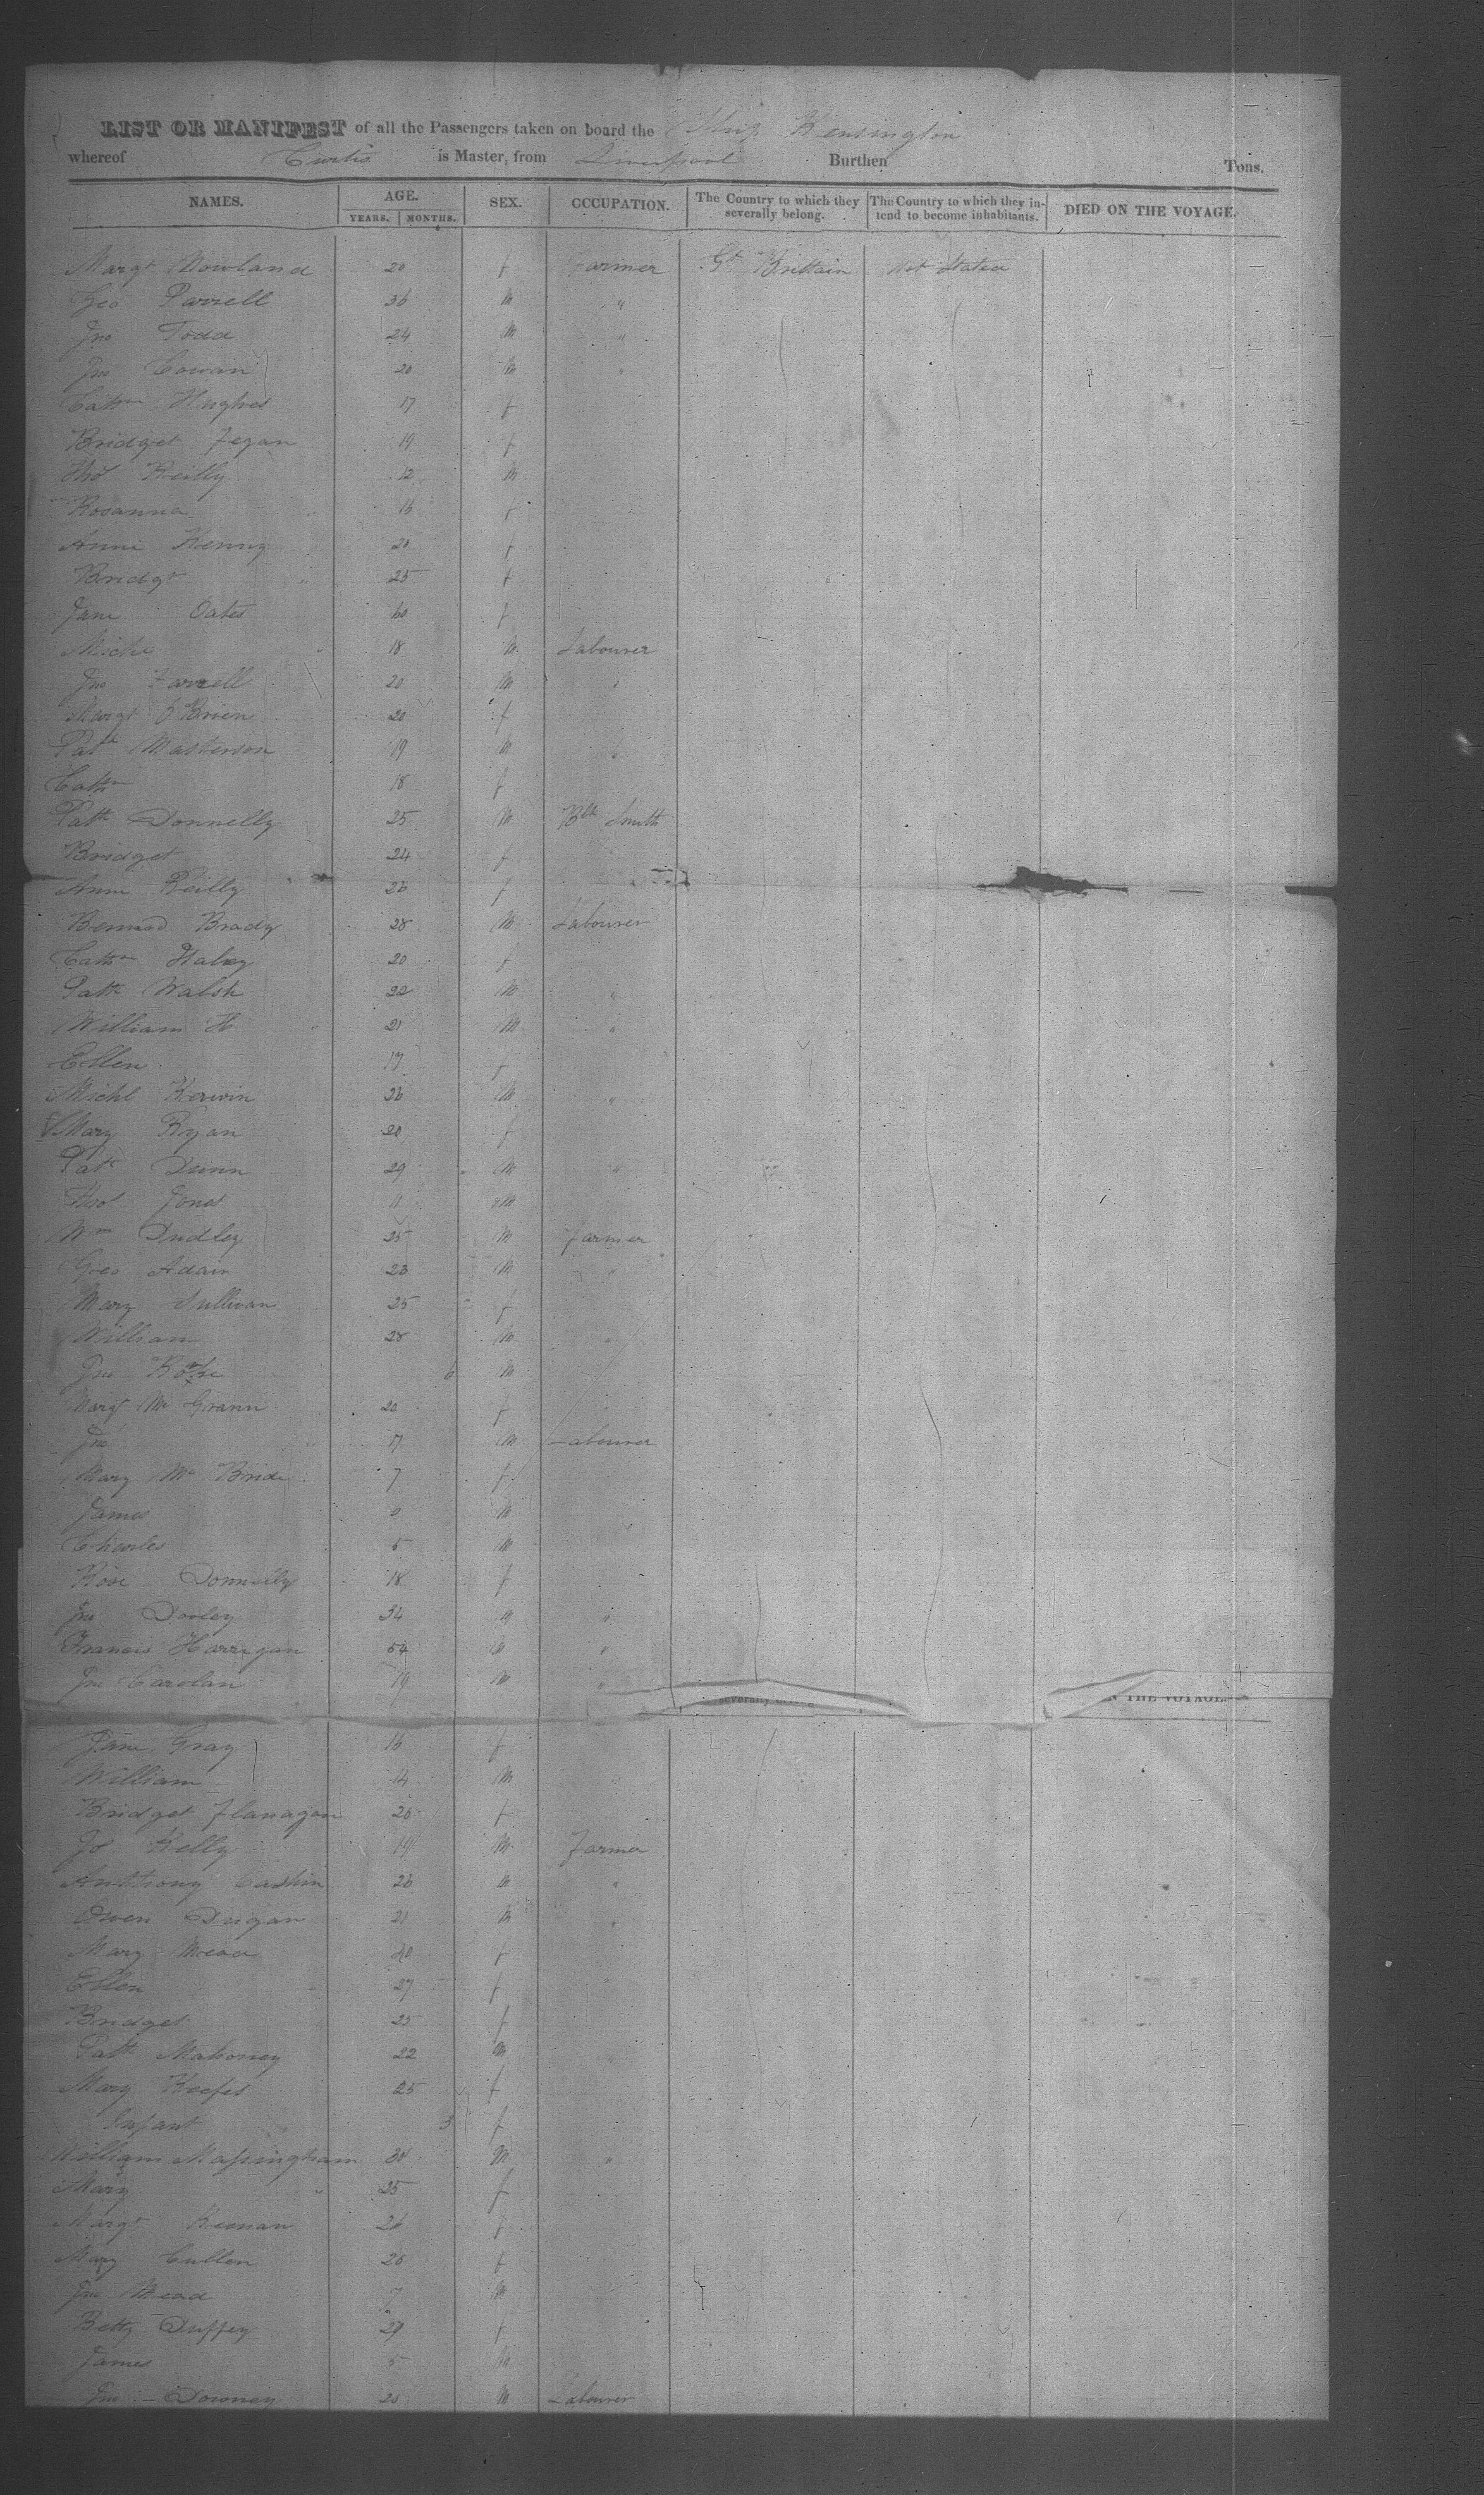 LIST OR MANIFEST of all the Passengers taken on board the Ship Kensington
whereof Curtis is Master, from Liverpool Burthen Tons.
NAMES. AGE. SEX. OCCUPATION. The Country to which they severally belong. The Country to which they intend to become inhabitants. DIED ON THE VOYAGE.
YEARS. MONTHS.
Margt Mowland 20 f Farmer Gt Brittain Unt States
Geo Parrell 36 m "
Jno Todd 24 m "
Jno Cowan 20 m "
Cathn Hughes 17 f
Bridget Fegan 19 f
Thos Reilly 12 m
Rosanna 16 f
Anne Kenny 20 f
Bridgt " 25 f
Jane Oates 60 f
Michl " 18 m Labourer
Jno Farrell 20 m "
Margt O'Brien 20 f
Patk Masterson 19 m "
Cathn 18 f
Patk Donnelly 25 m Blk Smith
Bridget 24 f
Ann Reilly 26 f
Bernard Brady 28 m Labourer
Cathn Haley 20 f
Patk Walsh 22 m "
William H " 21 m "
Ellen 17 f
Michl Kerwin 26 m "
Mary Ryan 20 f
Patk Dunn 29 m "
Thos Jones 11 m
Wm Dudley 25 m Farmer
Geo Adair 23 m "
Mary Sullivan 25 f
William 28 m "
Jno 6 m
Margt Mc Grann 20 f
Jno " 17 m Labourer
Mary Mc Bride 7 f
James 9 m
Charles 5 m
Rose Donnelly 18 f
Jno Dooley 34 m "
Francis Harrigan 54 m "
Jno Carolan 19 m "
severally THE VOYAGE.
Jane Gray 16 f
William 14 m
Bridget Flanagan 26 f
Jos Kelly 19 m Farmer
Anthony Cashin 26 m "
Owen Dugan 21 m "
Mary Mead 40 f
Ellen 27 f
Bridget 25 f
Patk Mahoney 22 m
Mary Keefes 25 f
Infant 3 f
William Massingham 30 m "
Mary " 25 f
Margt Keenan 26 f
Mary Cullen 26 f
Jno Mead 7 m
Betty Duffey 29 f
James 5 m
Jno Downey 25 m Labourer